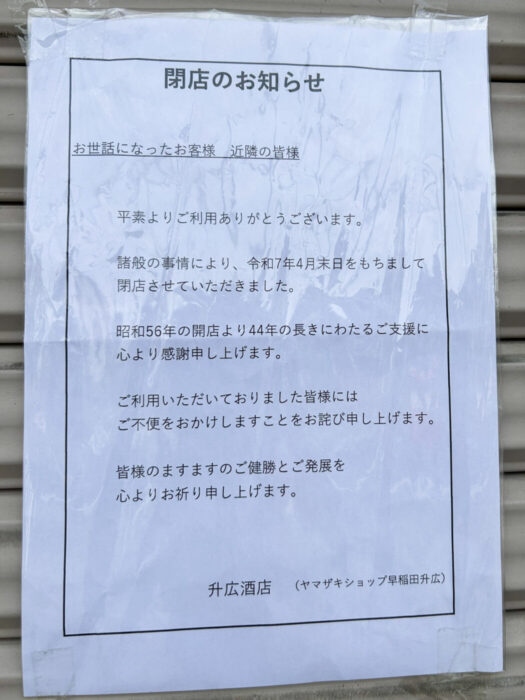 閉店のお知らせ
お世話になったお客様　近隣の皆様
平素よりご利用ありがとうございます。
諸般の事情により、令和7年4月末日をもちまして
閉店させていただきました。
昭和56年の開店より44年の長きにわたるご支援に
心より感謝申し上げます。
ご利用いただいておりました皆様には
ご不便をおかけしますことをお詫び申し上げます。
皆様のますますのご健勝とご発展を
心よりお祈り申し上げます。
升広酒店　（ヤマザキショップ早稲田升広）